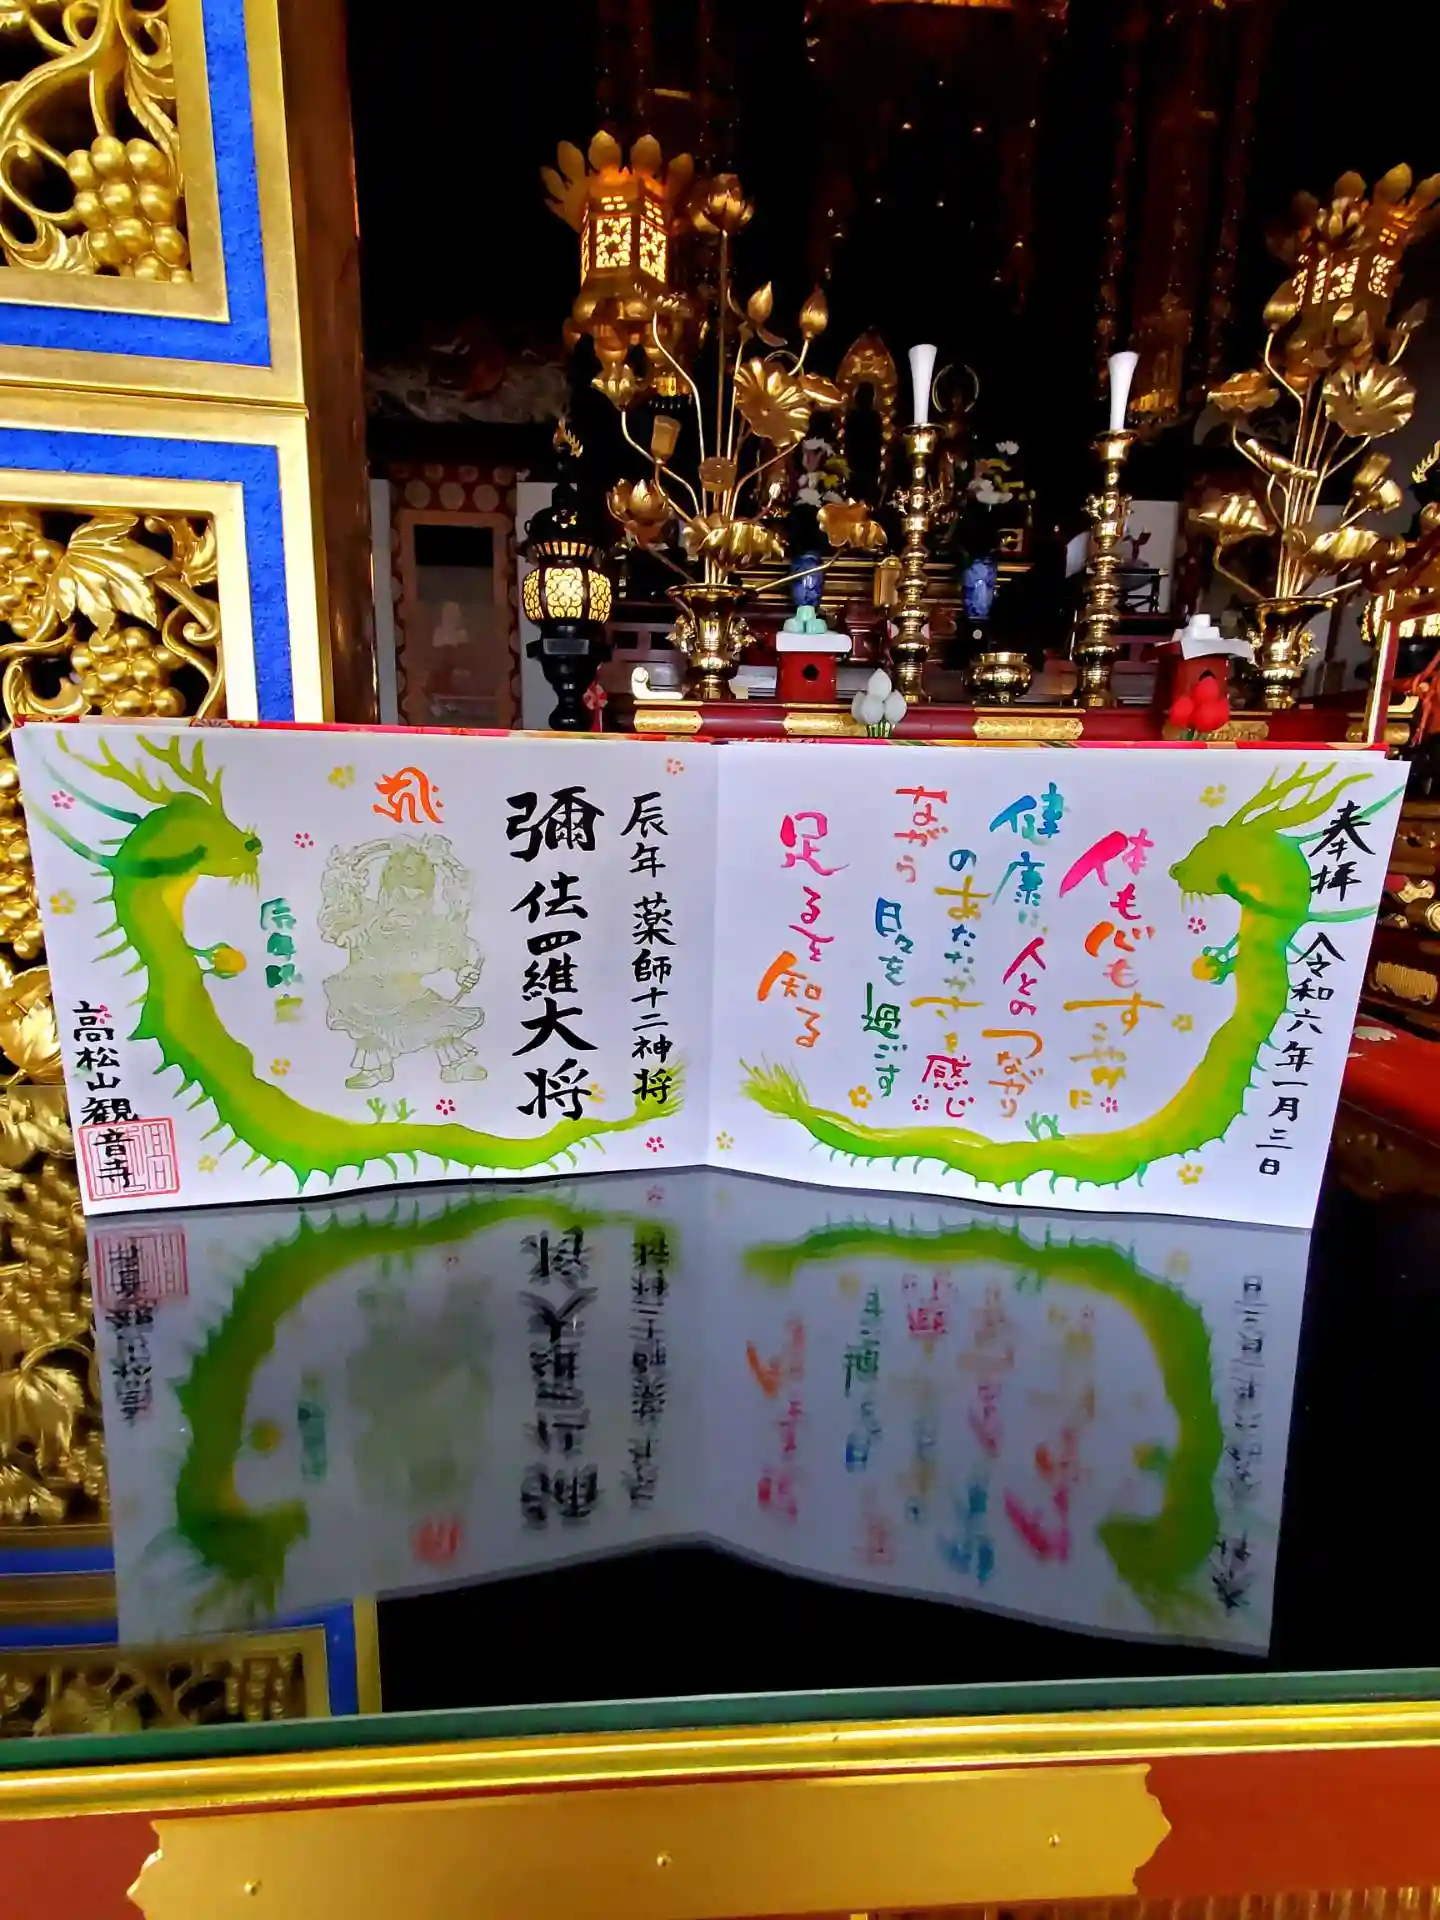 奉拝
令和六年一月三日
体も心もすこやかに
健康に、人とのつながり
のあたたかさを感じ
ながら
日々を過ごす
足るを知る
辰年 薬師十二神将
彌佉羅大将
辰年限定
高松山観音寺